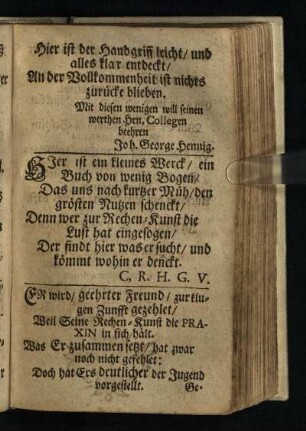 Hier ist der Handgriff leicht/ und
alles klar entdeckt/
An der Vollkommenheit ist nichts
zurücke blieben.
Mit diesen wenigen will seinen
werthen Hrn. Collegen
beehren
Joh. George Hennig.
HJer ist ein kleines Werck/ ein
Buch von wenig Bogen/
Das uns nach kurtzer Müh/ den
grösten Nutzen schenckt/
Denn wer zur Rechen-Kunst die
Lust hat eingesogen/
Der findt hier was er sucht/ und
kömmt wohin er denckt.
C. R. H. G. V.
ER wird/ geehrter Freund/ zur klu-
gen Zunfft gezehlet/
Weil Seine Rechen-Kunst die PRA-
XIN in sich hält.
Was Er zusammen setzt/ hat zwar
noch nicht gefehlet:
Doch hat Ers deutlicher der Jugend
vorgestellt.
Ge-